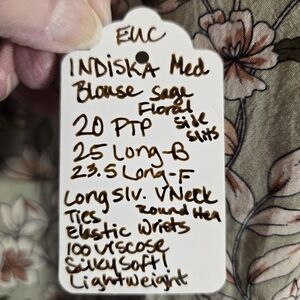 EUC
INDISKA Med
Blouse Sage
Floral
20 PTP Side
Slits
25 Long-B
23.5 Long-F
Long Slv. V Neck
Ties Round Hem
Elastic Wrists
100 Viscose
Silky Soft!
Lightweight